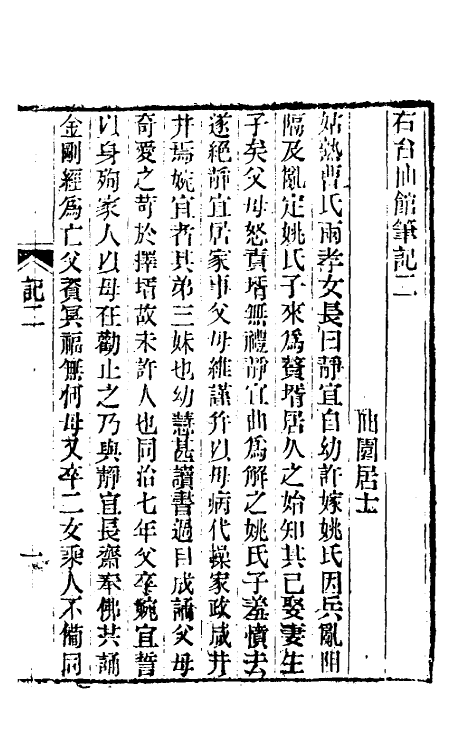 右台仙館筆記二
曲園居士
姑熟曹氏兩孝女長曰靜宜自幼許嫁姚氏因兵亂阻
隔及亂定姚氏子來為贅壻居久之始知其已娶妻生
子矣父母怒責壻無禮靜宜曲為解之姚氏子羞憤去
遂絕靜宜居家事父母維謹并以母病代操家政咸井
井焉婉宜者其弟三妹也幼慧甚讀書過目成誦父母
奇愛之苛於擇壻故未許人也同治七年父卒婉宜誓
以身殉家人以母在勸止之乃與靜宜長齋奉佛共誦
金剛經為亡父資冥福無何母又卒二女乘人不備同
記二
一